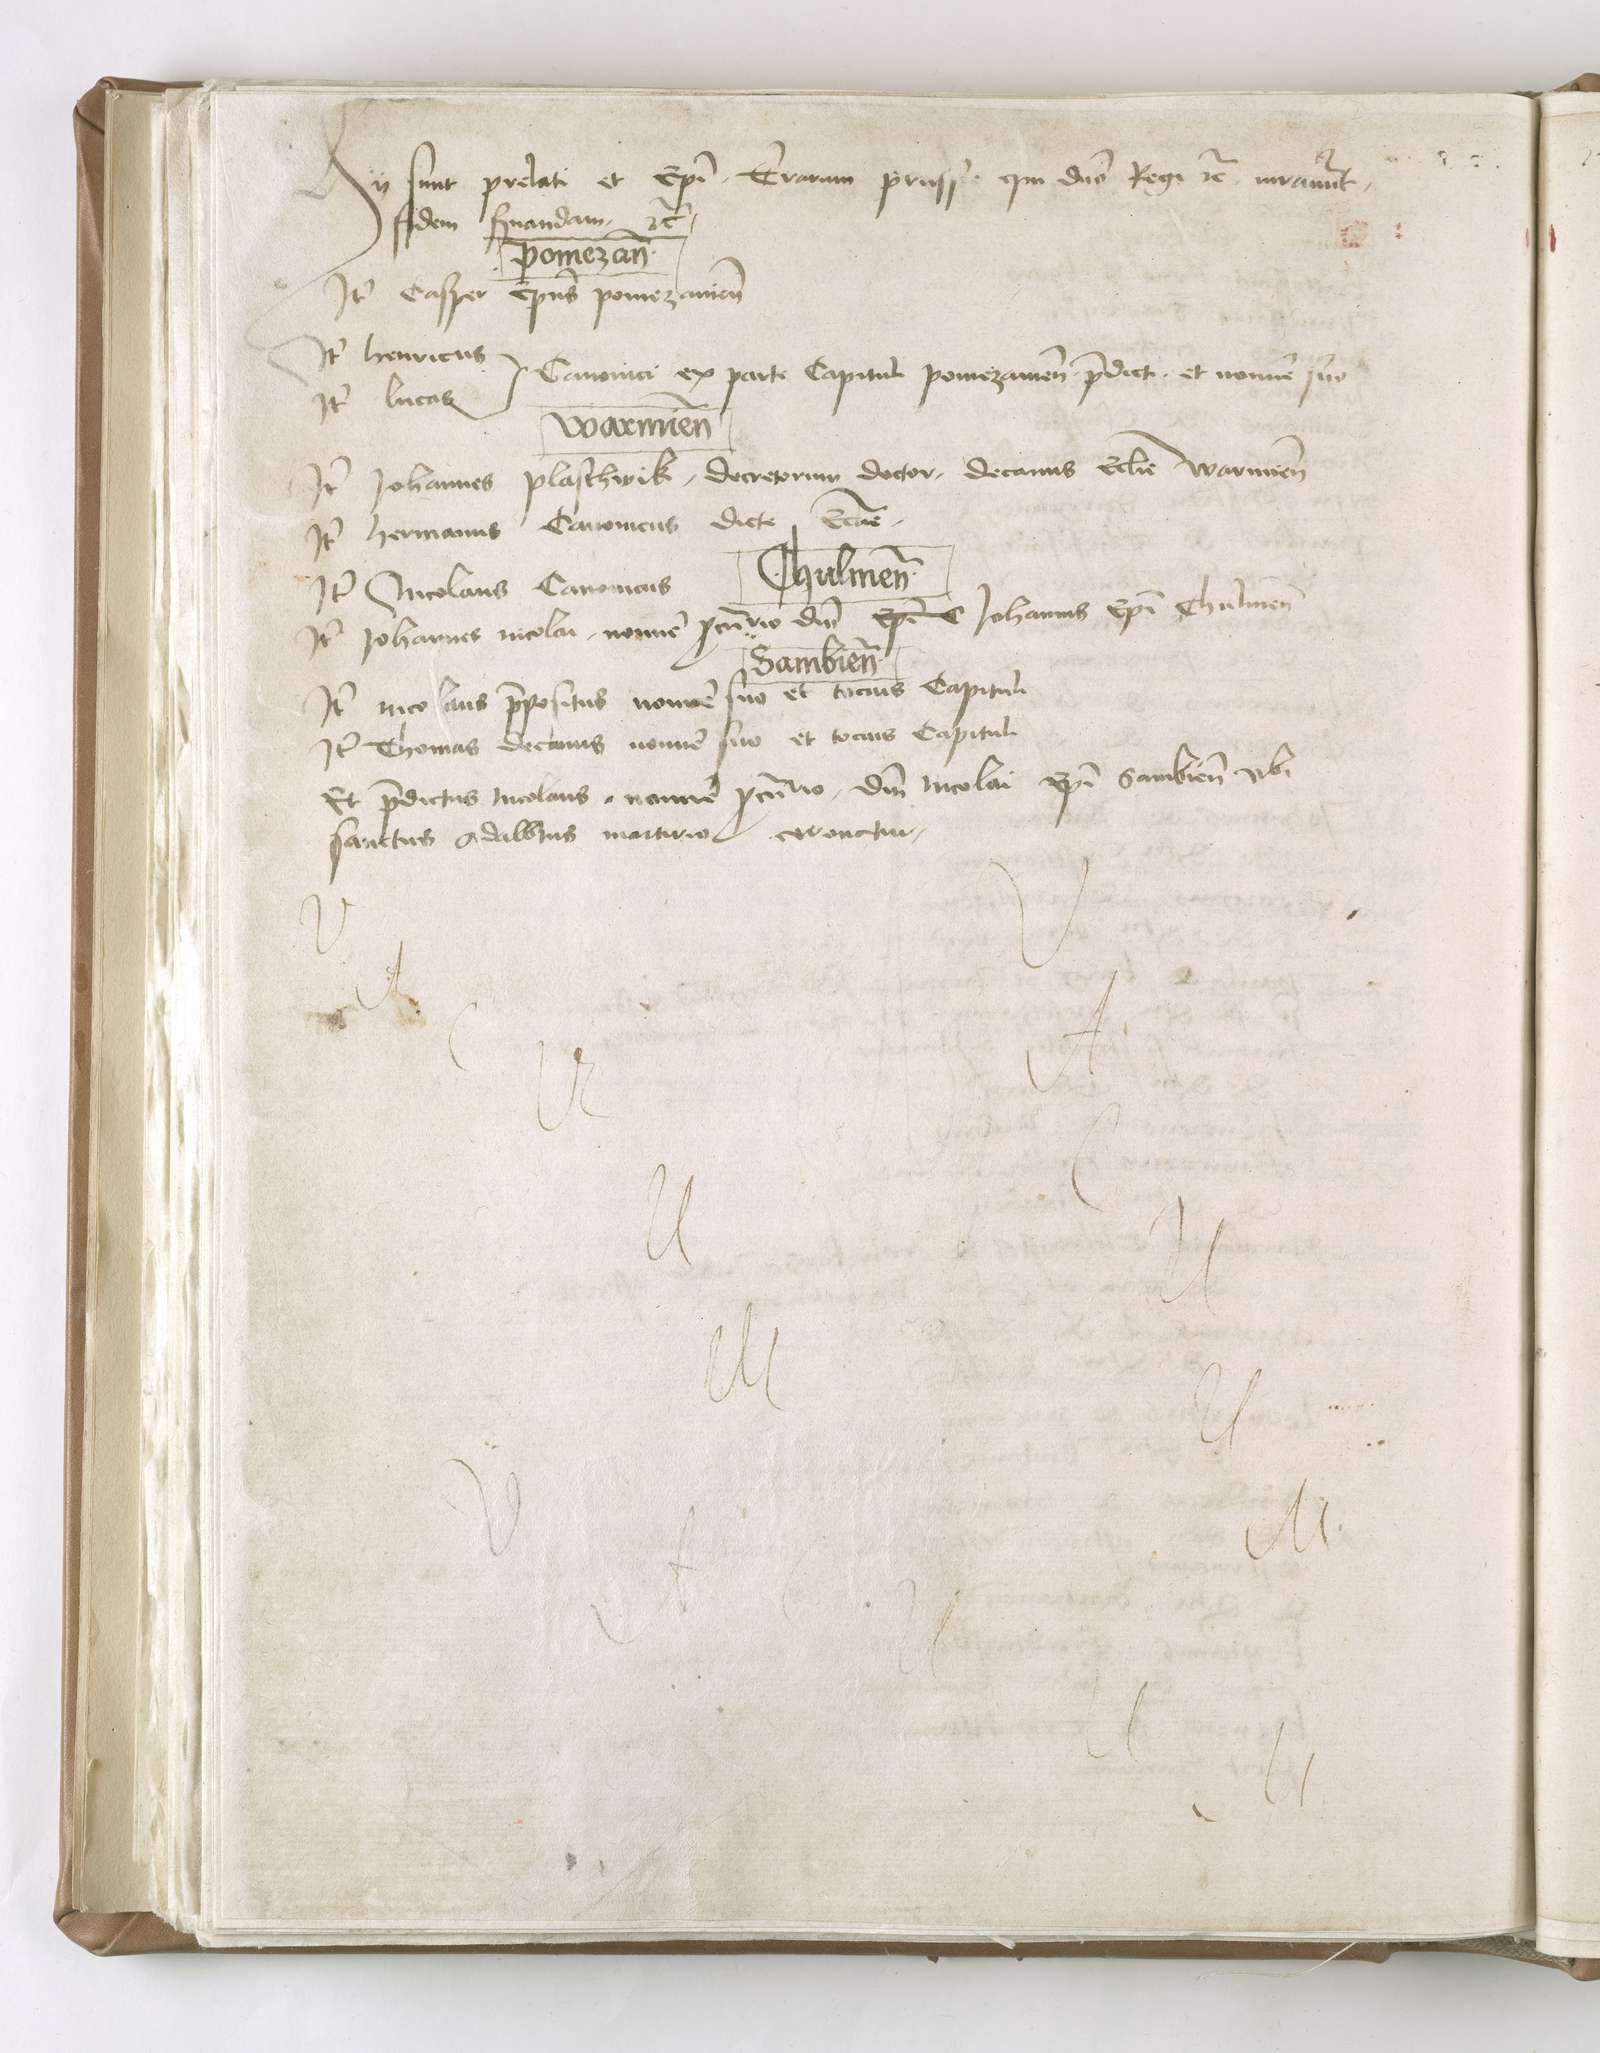 Hij sunt prelati et Epi Terrarum prussie qui dno Regi rc iurauerut
fidem seruandam rc
pomezan
It Casper Epus pomezanien
It henricus
It lucas
Canonici ex parte Capituli pomezanien pdicti et nomie suo
warmien
It Johannes plasthwik decretorum doctor decanus Eclie warmien
It hermanus Canonicus dicte Eclie
It Nicolaus Canonicus
Chulmen
It Johannes nicolai nomie pcurio dni Epi C Johannis Epi Chulmen
Sambien
It nicolaus ppositus nomie suo et tocius Capituli
It Thomas decanus nomie suo et tocius Capituli
Et pdictus nicolaus nomie pcurio dni nicolai Epi Sambien vbi
sanctus Adalbtus martirio coronatur
V
V
A
A
C
C
U
U
U
M
M
V
A